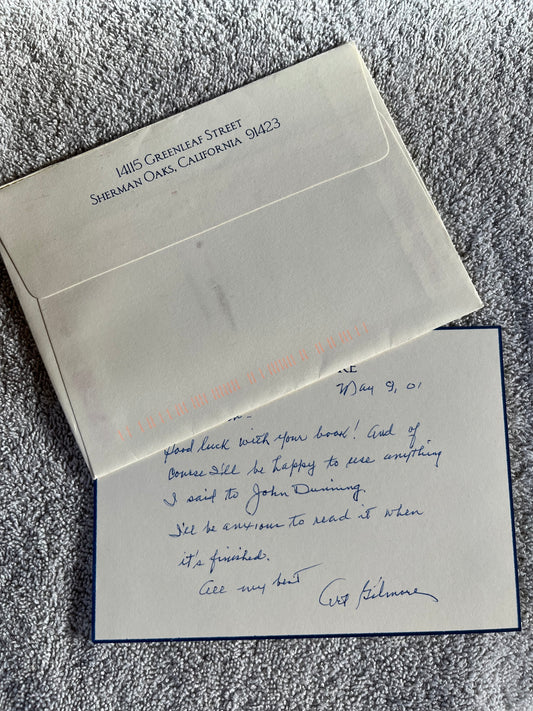 14115 Greenleaf Street
Sherman Oaks, California 91423
RE
May 9, 01
Good luck with your book! And of
course I'll be happy to use anything
I said to John Dunning
I'll be anxious to read it when
it's finished.
All my best
Art Gilmore